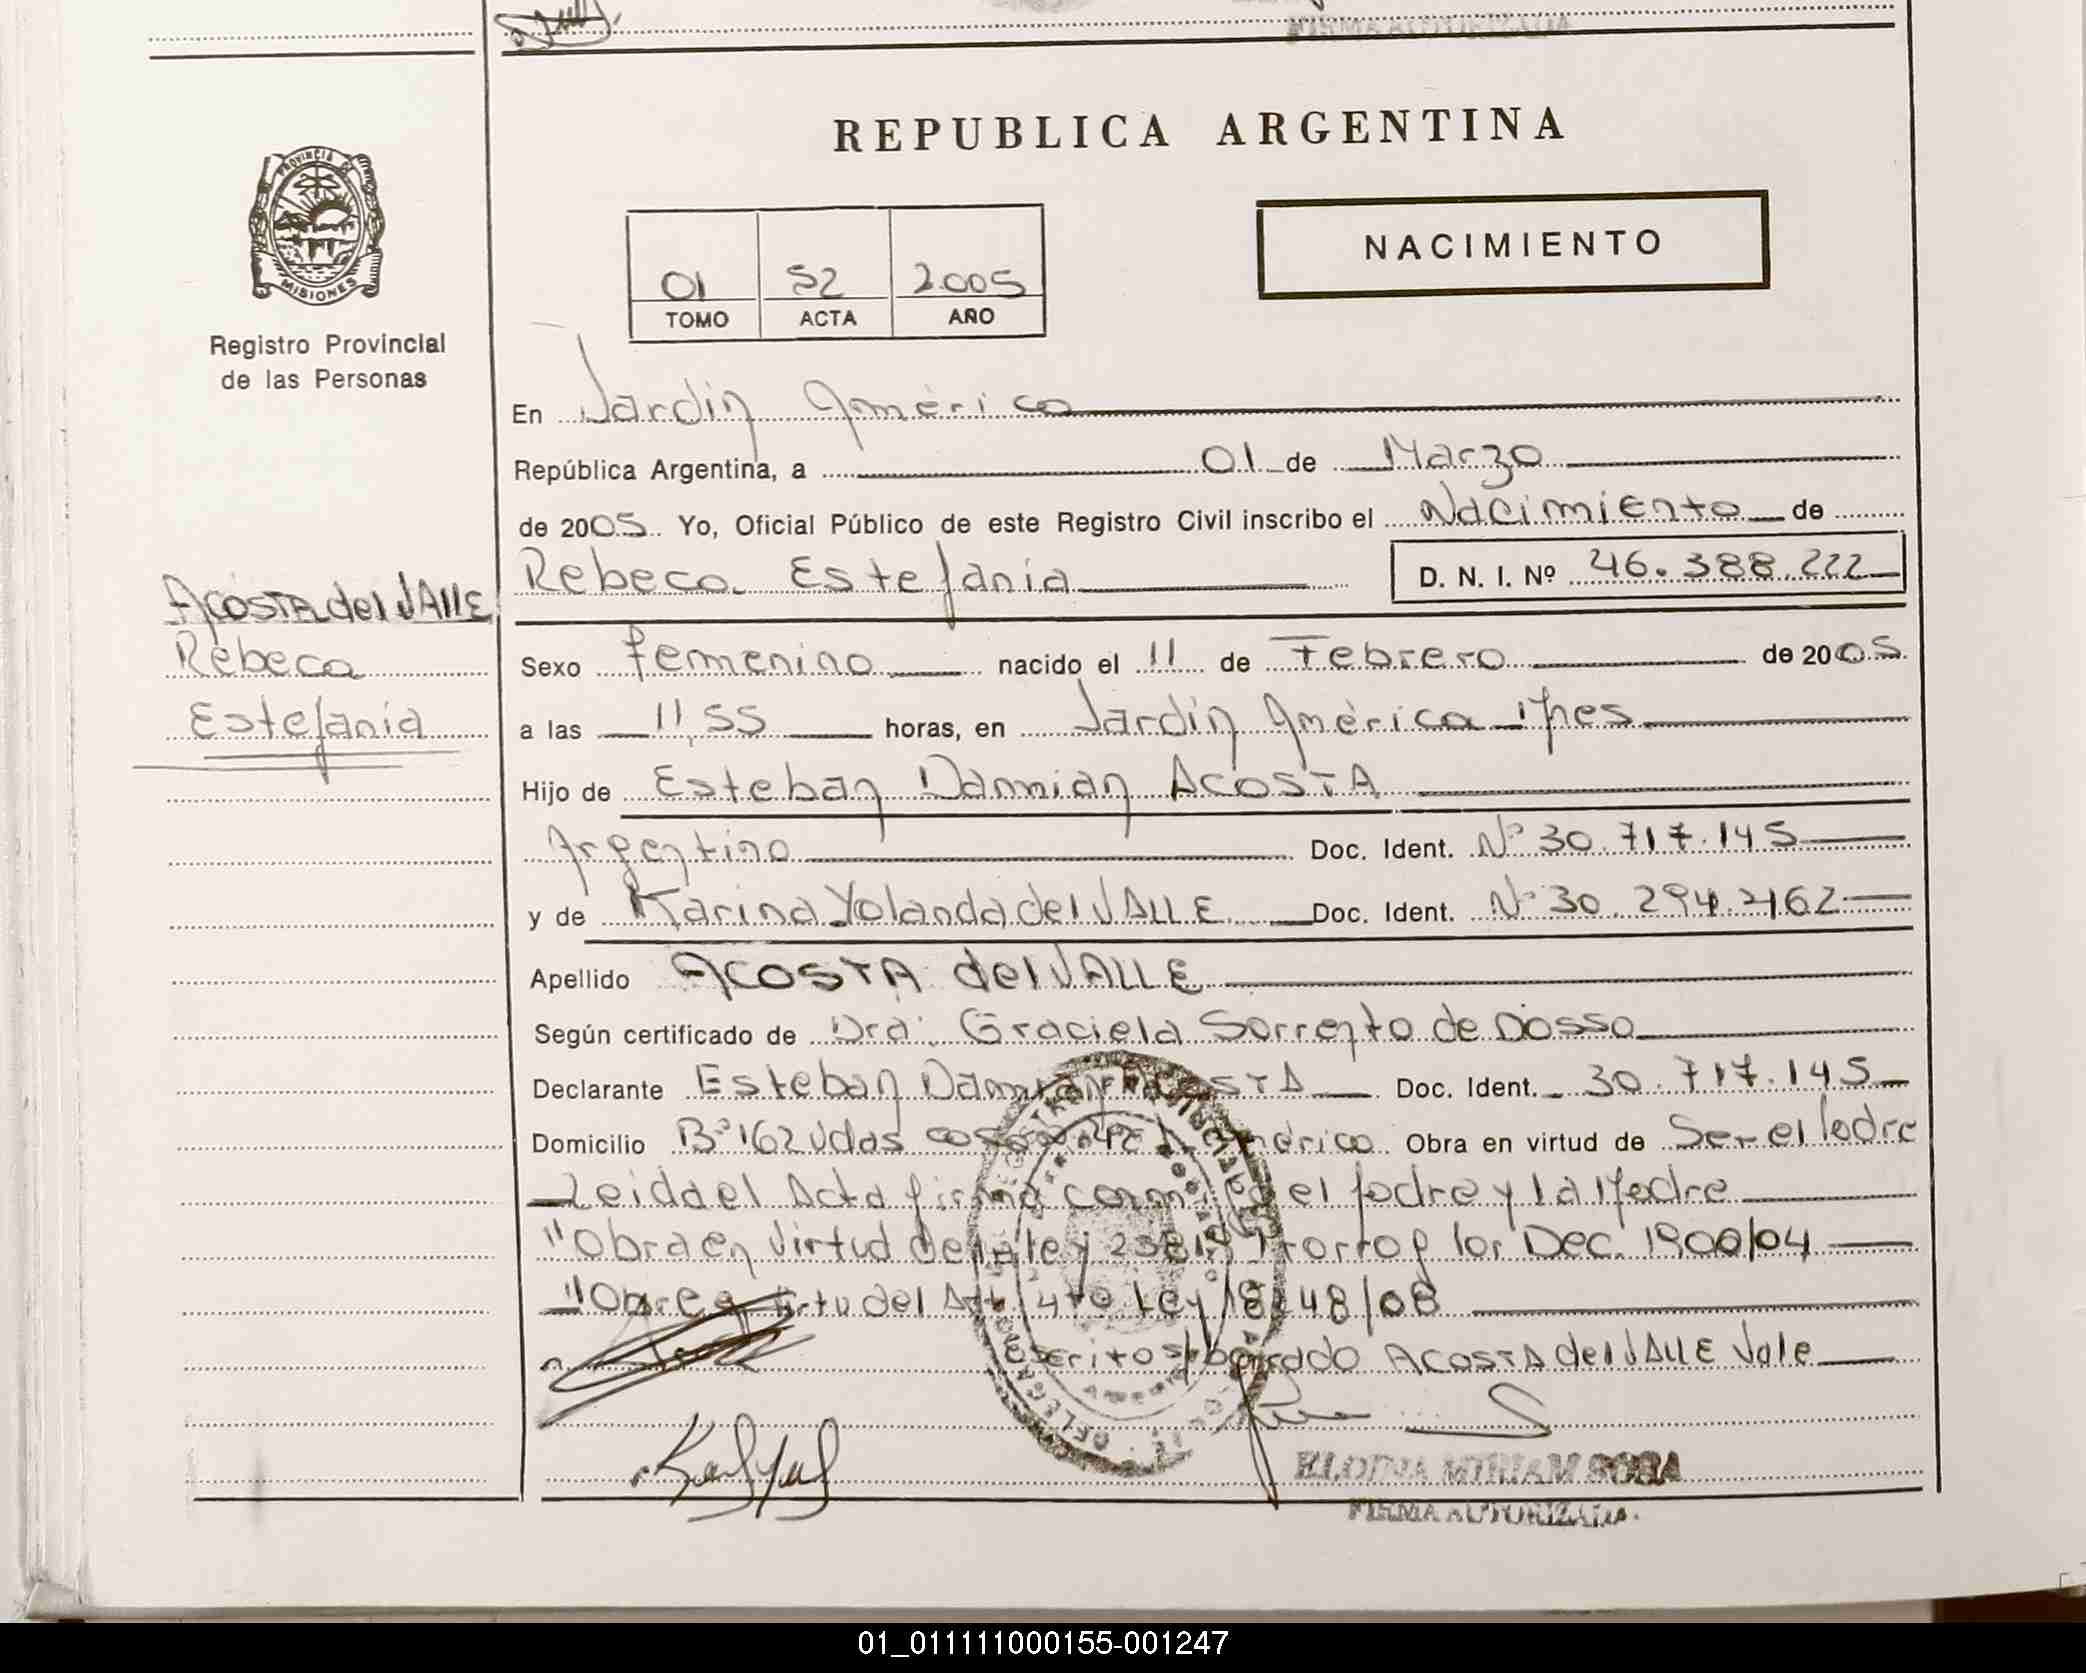 REPUBLICA ARGENTINA
PROVINCIA DE
MISIONES
Registro Provincial
de las Personas
01 52 2005
TOMO ACTA AÑO
NACIMIENTO
En Jardín América
República Argentina, a 01 de Marzo
de 2005 Yo, Oficial Público de este Registro Civil inscribo el Nacimiento de
Rebeca Estefanía D. N. I. Nº 46.388.222
Acosta del VAllE
Rebeca
Estefanía
Sexo femenino nacido el 11 de Febrero de 2005
a las 11,55 horas, en Jardín América Mnes
Hijo de Esteban Damian ACOSTA
Argentino Doc. Ident. Nº 30.717.145
y de Karina Yolanda del VALLE Doc. Ident. Nº 30.294.462
Apellido ACOSTA del VALLE
Según certificado de Dra. Graciela Sorrento de Dosso
Declarante Esteban Damian ACOSTA Doc. Ident. 30.717.145
Domicilio Bº 162 Vdas casa América Obra en virtud de Ser el Padre
Leida el Acta firma conmigo el Padre y la Madre
"Obra en Virtud de la ley Prorrog Por Dec. 1900/04
"Obra Virtu del Art 4to Ley 18248/08
Escrito s/borrado ACOSTA del VALLE Vale
MIRIAM SOSA
FIRMA AUTORIZADA
01_011111000155-001247